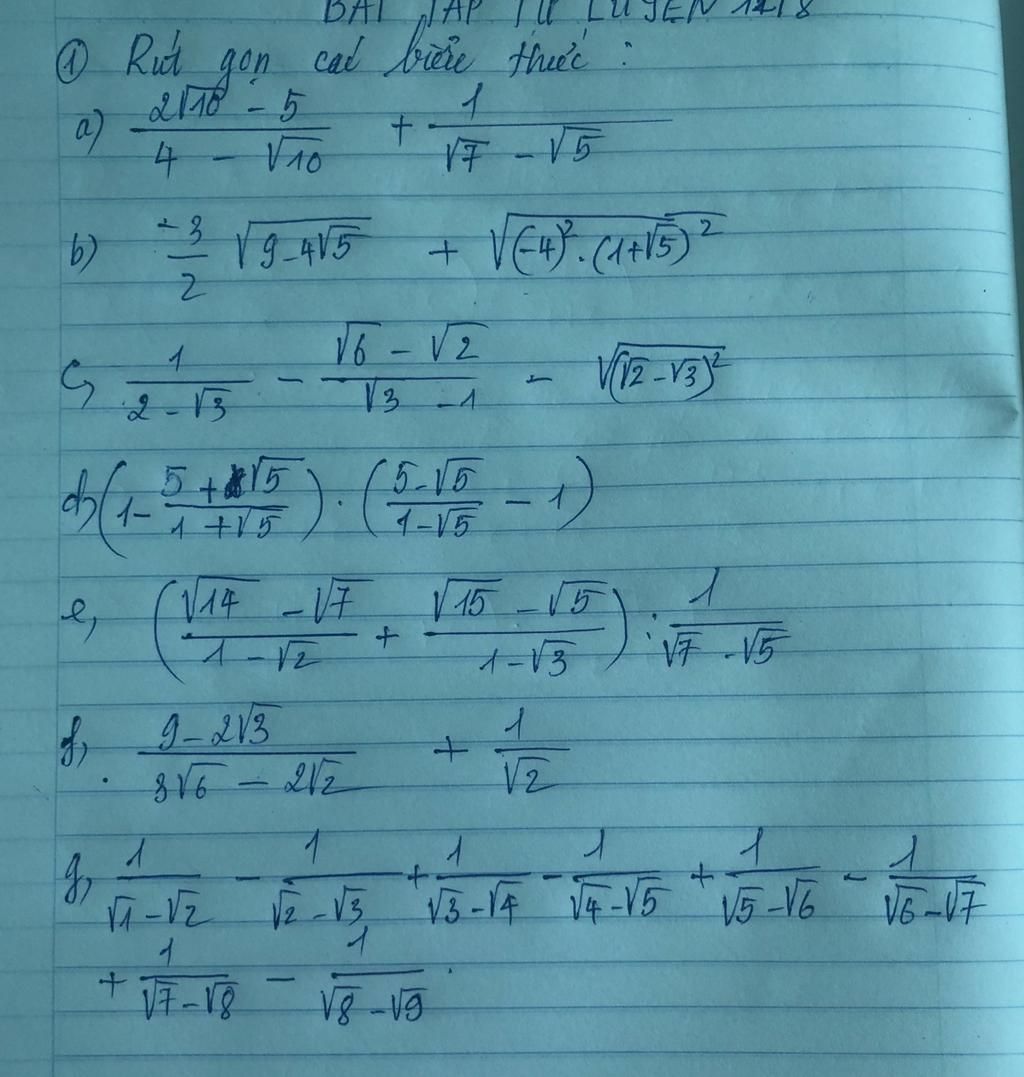 BÀI TẬP TỰ LUYỆN 17/8
① Rút gọn các biểu thức :
a) (2√10 - 5)/(4 - √10) + 1/(√7 - √5)
b) -3/2 √(9-4√5) + √((-4)².(1+√5)²)
c, 1/(2-√3) - (√6-√2)/(√3-1) - √((√2-√3)²)
d, (1- (5+√5)/(1+√5)) . ((5-√5)/(1-√5) - 1)
e, ((√14 - √7)/(1-√2) + (√15 - √5)/(1-√3)) : 1/(√7-√5)
f, (9-2√3)/(3√6 - 2√2) + 1/√2
g, 1/(√1-√2) - 1/(√2-√3) + 1/(√3-√4) - 1/(√4-√5) + 1/(√5-√6) - 1/(√6-√7)
+ 1/(√7-√8) - 1/(√8-√9) .